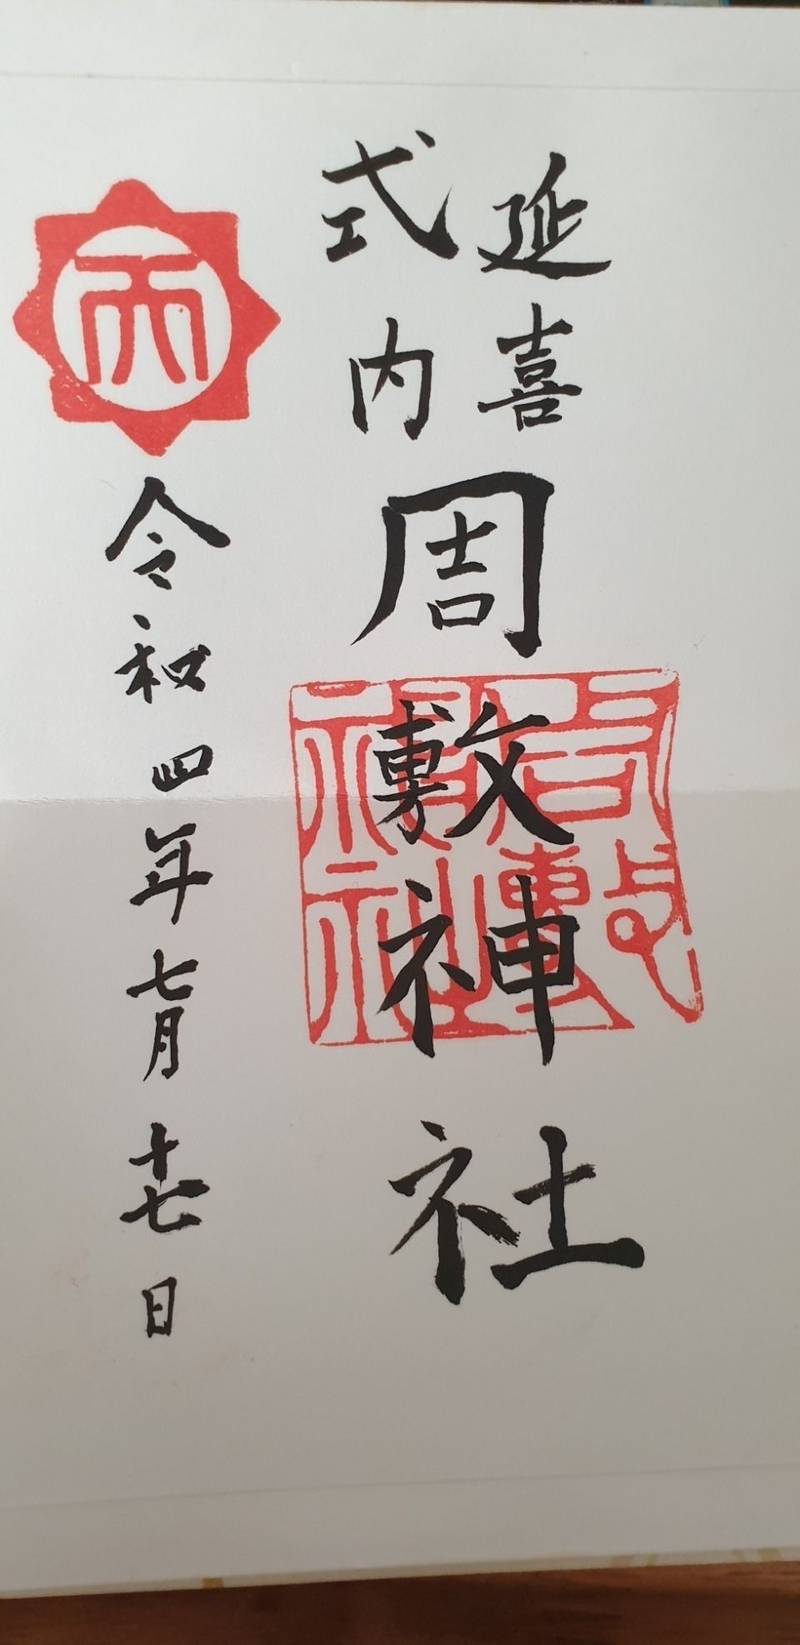 延喜
式内
周敷神社
令和四年七月十七日